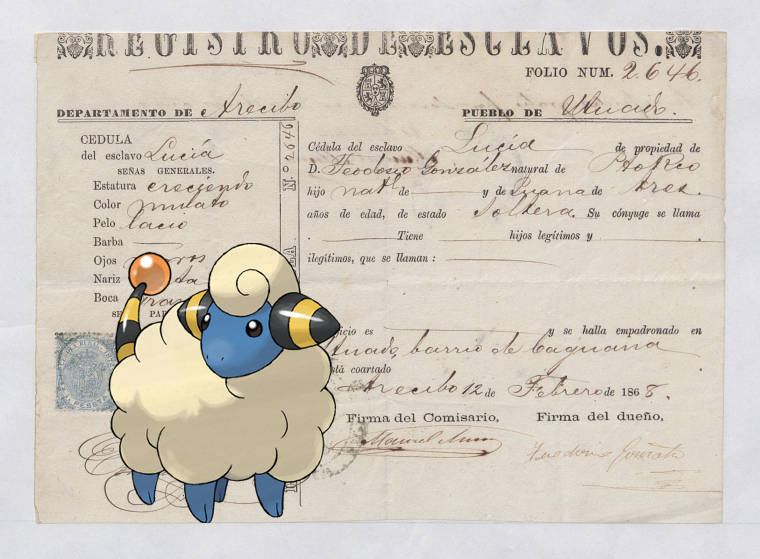 REGISTRO DE ESCLAVOS.
FOLIO NUM. 2.646.
DEPARTAMENTO DE Arecibo
PUEBLO DE Utuado.
CEDULA
del esclavo Lucía
SEÑAS GENERALES.
Estatura creciendo
Color mulato
Pelo lacio
Barba
Ojos
Nariz
Boca
N.º 2646
Cédula del esclavo Lucía de propiedad de
D. Teodosio González natural de Pto Rco
hijo natl de y de Juana de tres
años de edad, de estado Soltera. Su cónyuge se llama
Tiene hijos legítimos y
ilegítimos, que se llaman:
icio es y se halla empadronado en
Utuado, barrio de Caguana
stá coartado
Arecibo 12 de Febrero de 1868.
Firma del Comisario, Firma del dueño,
Manuel
Teodosio González